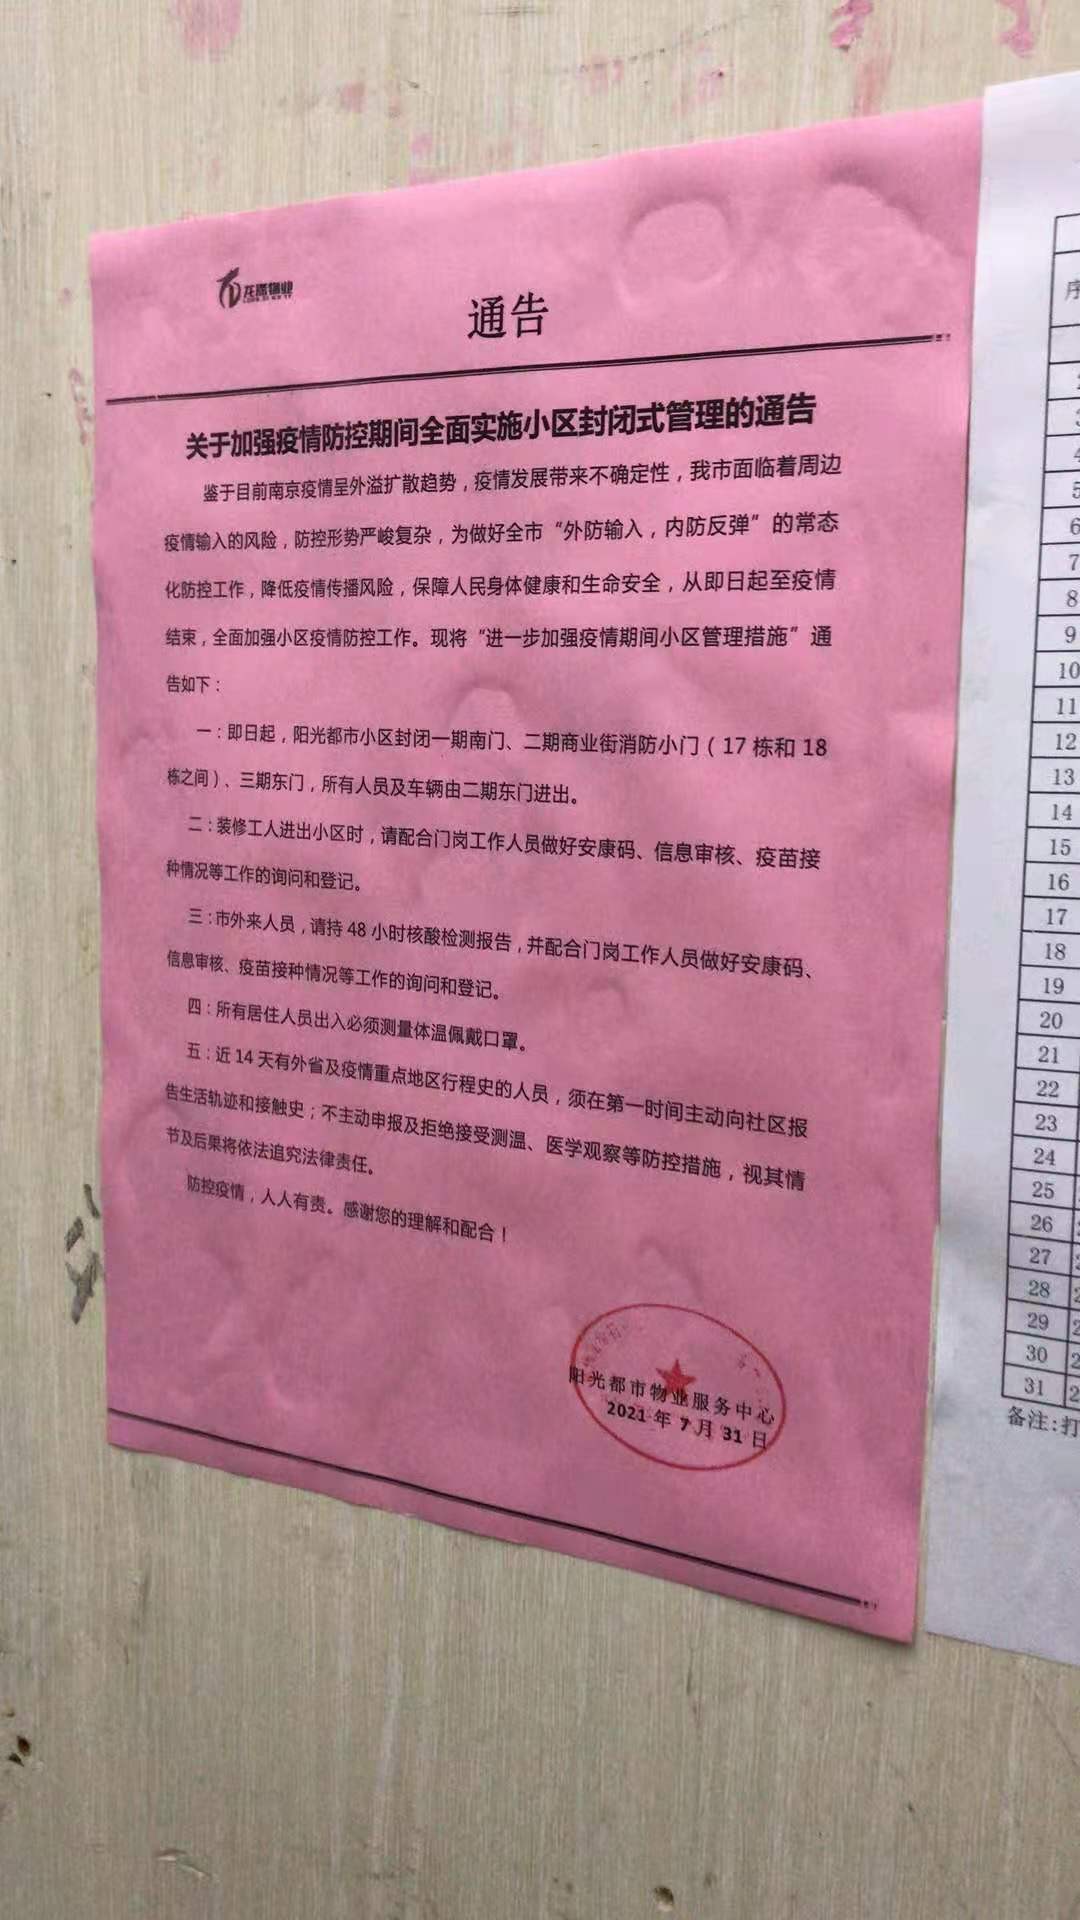 龙
物业
通告
关于加强疫情防控期间全面实施小区封闭式管理的通告
鉴于目前南京疫情呈外溢扩散趋势，疫情发展带来不确定性，我市面临着周边
疫情输入的风险，防控形势严峻复杂，为做好全市“外防输入，内防反弹”的常态
化防控工作，降低疫情传播风险，保障人民身体健康和生命安全，从即日起至疫情
结束，全面加强小区疫情防控工作。现将“进一步加强疫情期间小区管理措施”通
告如下：
一：即日起，阳光都市小区封闭一期南门、二期商业街消防小门（17栋和18
栋之间）、三期东门，所有人员及车辆由二期东门进出。
二：装修工人进出小区时，请配合门岗工作人员做好安康码、信息审核、疫苗接
种情况等工作的询问和登记。
三：市外来人员，请持48小时核酸检测报告，并配合门岗工作人员做好安康码、
信息审核、疫苗接种情况等工作的询问和登记。
四：所有居住人员出入必须测量体温佩戴口罩。
五：近14天有外省及疫情重点地区行程史的人员，须在第一时间主动向社区报
告生活轨迹和接触史；不主动申报及拒绝接受测温、医学观察等防控措施，视其情
节及后果将依法追究法律责任。
防控疫情，人人有责。感谢您的理解和配合！
阳光都市物业服务中心
2021年7月31日
序
5
6
7
8
9
10
11
12
13
14
15
16
17
18
19
20
21
22
23
24
25
26
27
28
29
30
31
备注:打